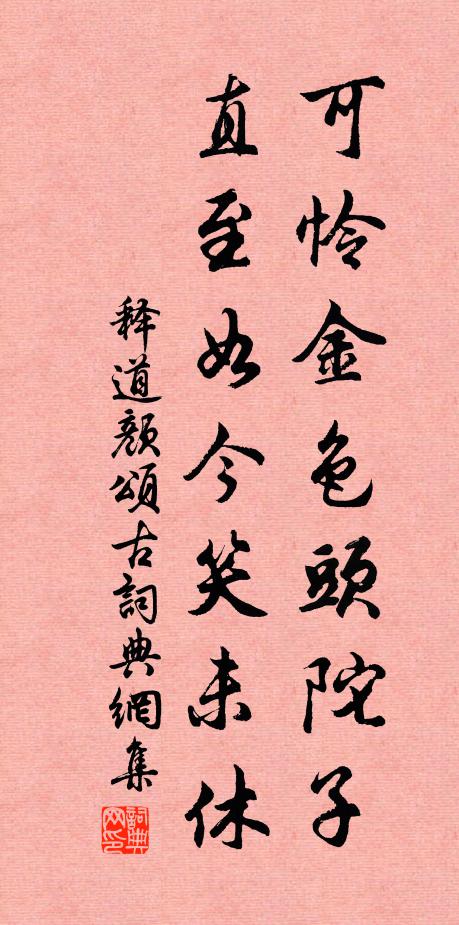 可怜金色頭陀子
直至如今笑未休
释道颜頌古詞典網集
詞典网印